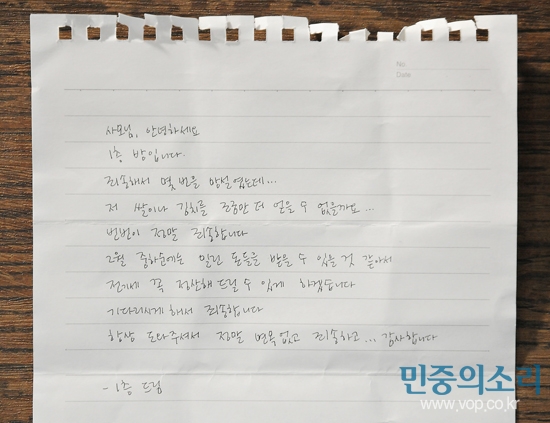 No.
Date
사모님, 안녕하세요
1층 방입니다.
죄송해서 몇 번을 망설였는데...
저 쌀이나 김치를 조금만 더 얻을 수 없을까요...
번번이 정말 죄송합니다
2월 중하순에는 밀린 돈들을 받을 수 있을 것 같아서
전기세 꼭 정산해 드릴 수 있게 하겠습니다
기다리시게 해서 죄송합니다
항상 도와주셔서 정말 면목없고 죄송하고... 감사합니다
- 1층 드림
민중의소리
www.vop.co.kr